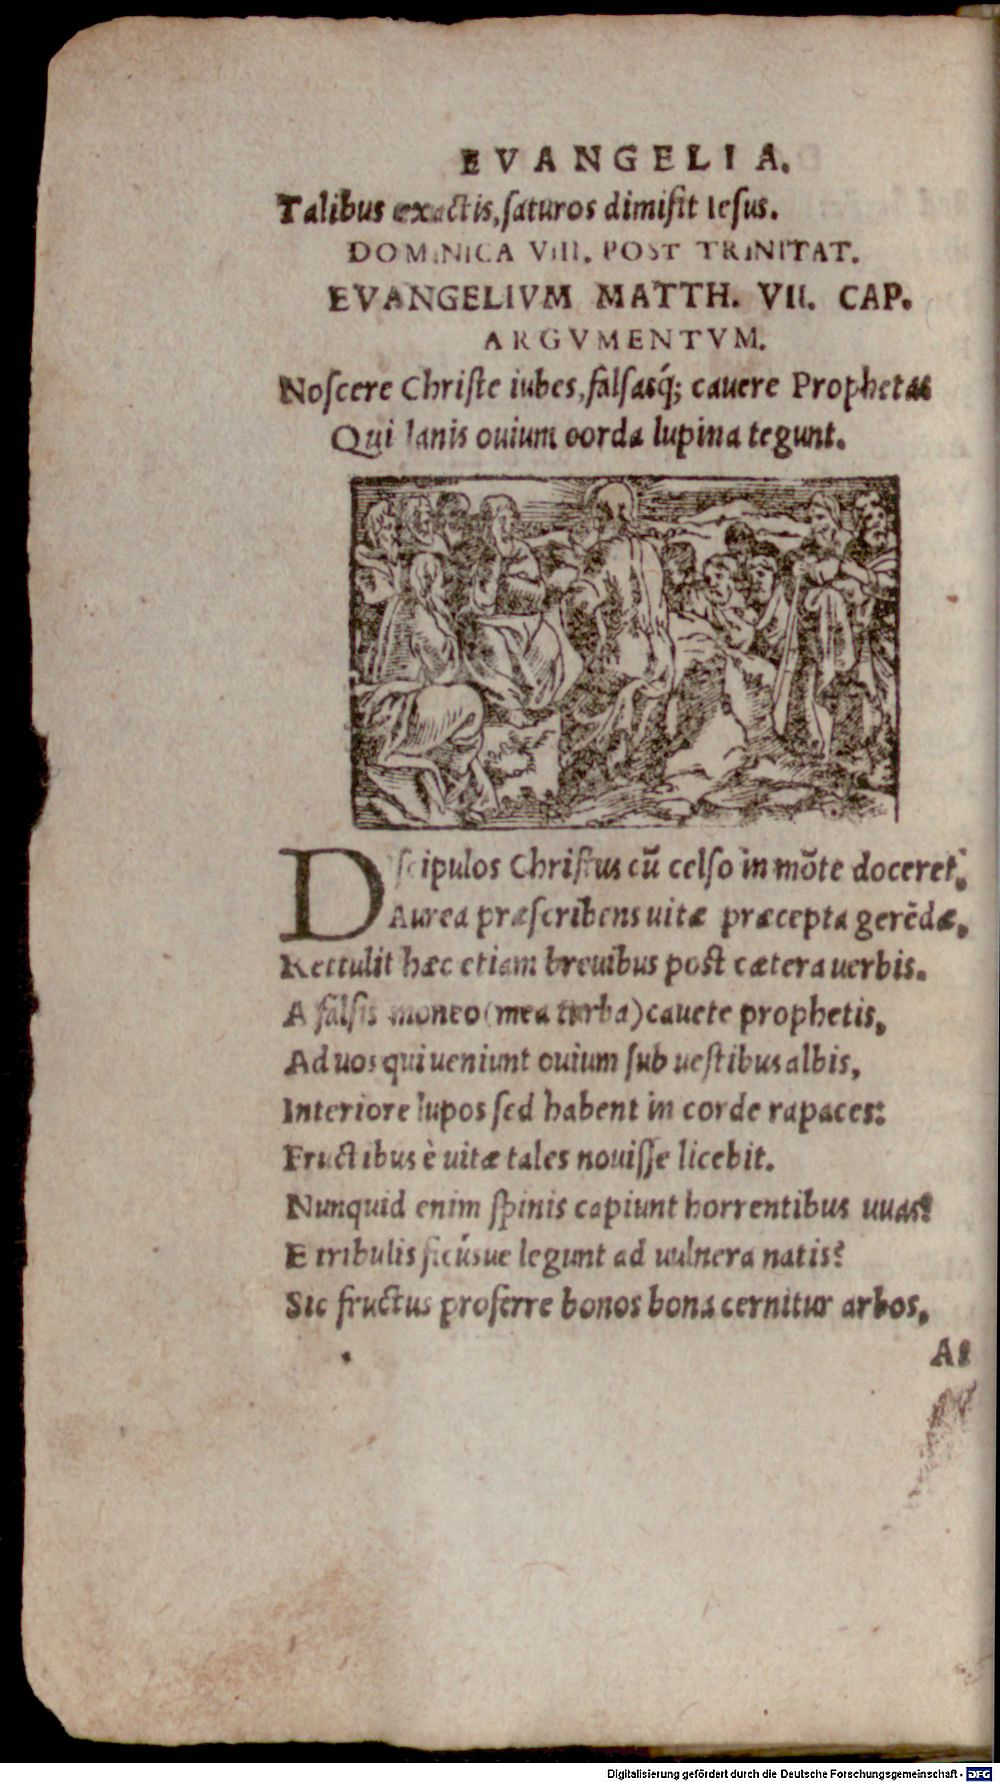 EVANGELIA.
Talibus exactis, ſaturos dimiſit Ieſus.
DOMINICA VIII. POST TRINITAT.
EVANGELIVM MATTH. VII. CAP.
ARGVMENTVM.
Noſcere Chriſte iubes, falſasq́; cauere Prophetas
Qui lanis ouium corda lupina tegunt.
Diſcipulos Chriſtus cũ celſo in mõte doceret,
Aurea præſcribens uitæ præcepta gerẽdæ,
Rettulit hæc etiam breuibus poſt cætera uerbis.
A falſis moneo (mea turba) cauete prophetis,
Ad uos qui ueniunt ouium ſub ueſtibus albis,
Interiore lupos ſed habent in corde rapaces:
Fructibus è uitæ tales nouiſſe licebit.
Nunquid enim ſpinis capiunt horrentibus uuas?
E tribulis ficúsue legunt ad uulnera natis?
Sic fructus proferre bonos bona cernitur arbos,
At
Digitalisierung gefördert durch die Deutsche Forschungsgemeinschaft - DFG